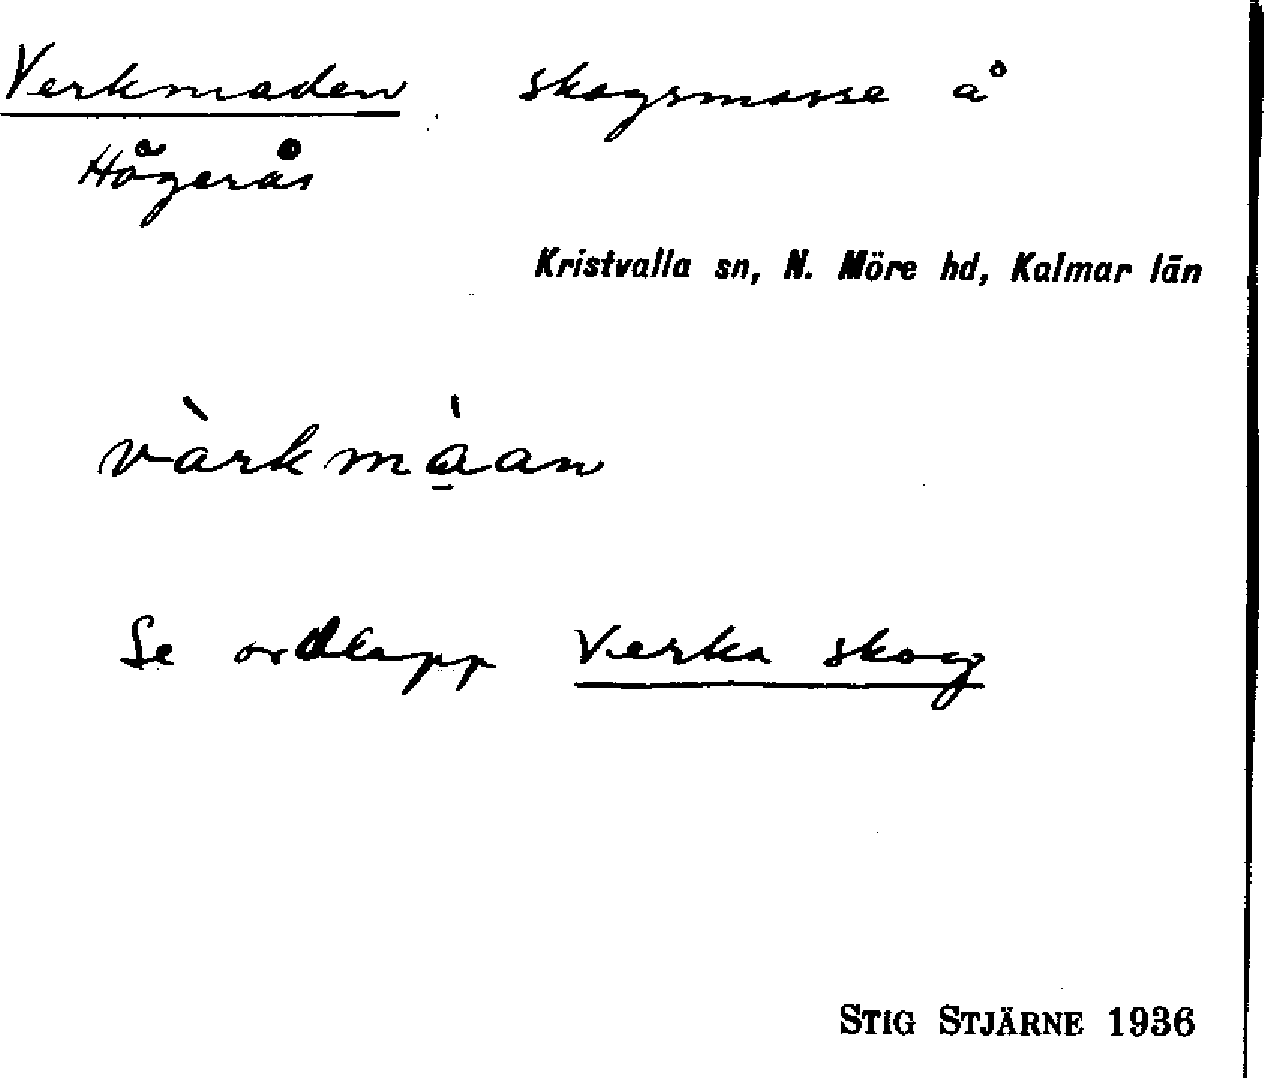 Verkmaden skogsmosse å
Högerås
Kristvalla sn, N. Möre hd, Kalmar län
vàrkma̱̍an
Se ordlapp Verka skog
STIG STJÄRNE 1936